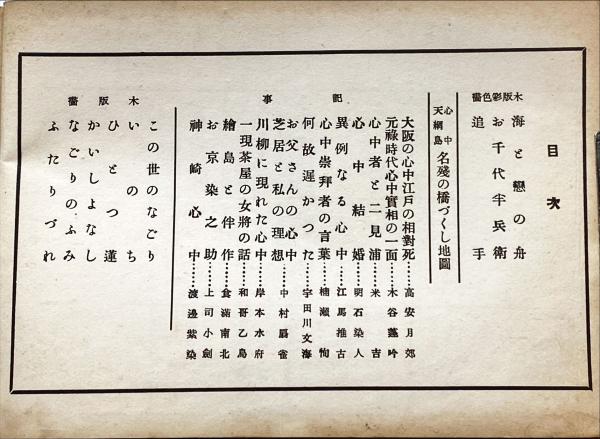 目次
木版彩色畵
海と戀の舟
お千代半兵衛
追手
心中天網島 名殘の橋づくし地圖
記事
大阪の心中江戸の相對死……高安月郊
元祿時代心中實相の一面……木谷蓬吟
心中者と二見浦……米吉
心中結婚……明石染人
異例なる心中……江馬推古
心中崇拜者の言葉……楠瀬恂
何故遲かつた……宇田川文海
お父さんの心中……中村扇雀
芝居と私の理想
川柳に現れた心中……岸本水府
一現茶屋の女將の話……和哥乙鳥
繪島と伴作……食滿南北
お京染之助……上司小劍
神崎心中……渡邊紫染
木版畵
この世のなごり
いのち
ひとつ蓮
かいしよなし
なごりのふみ
ふたりづれ